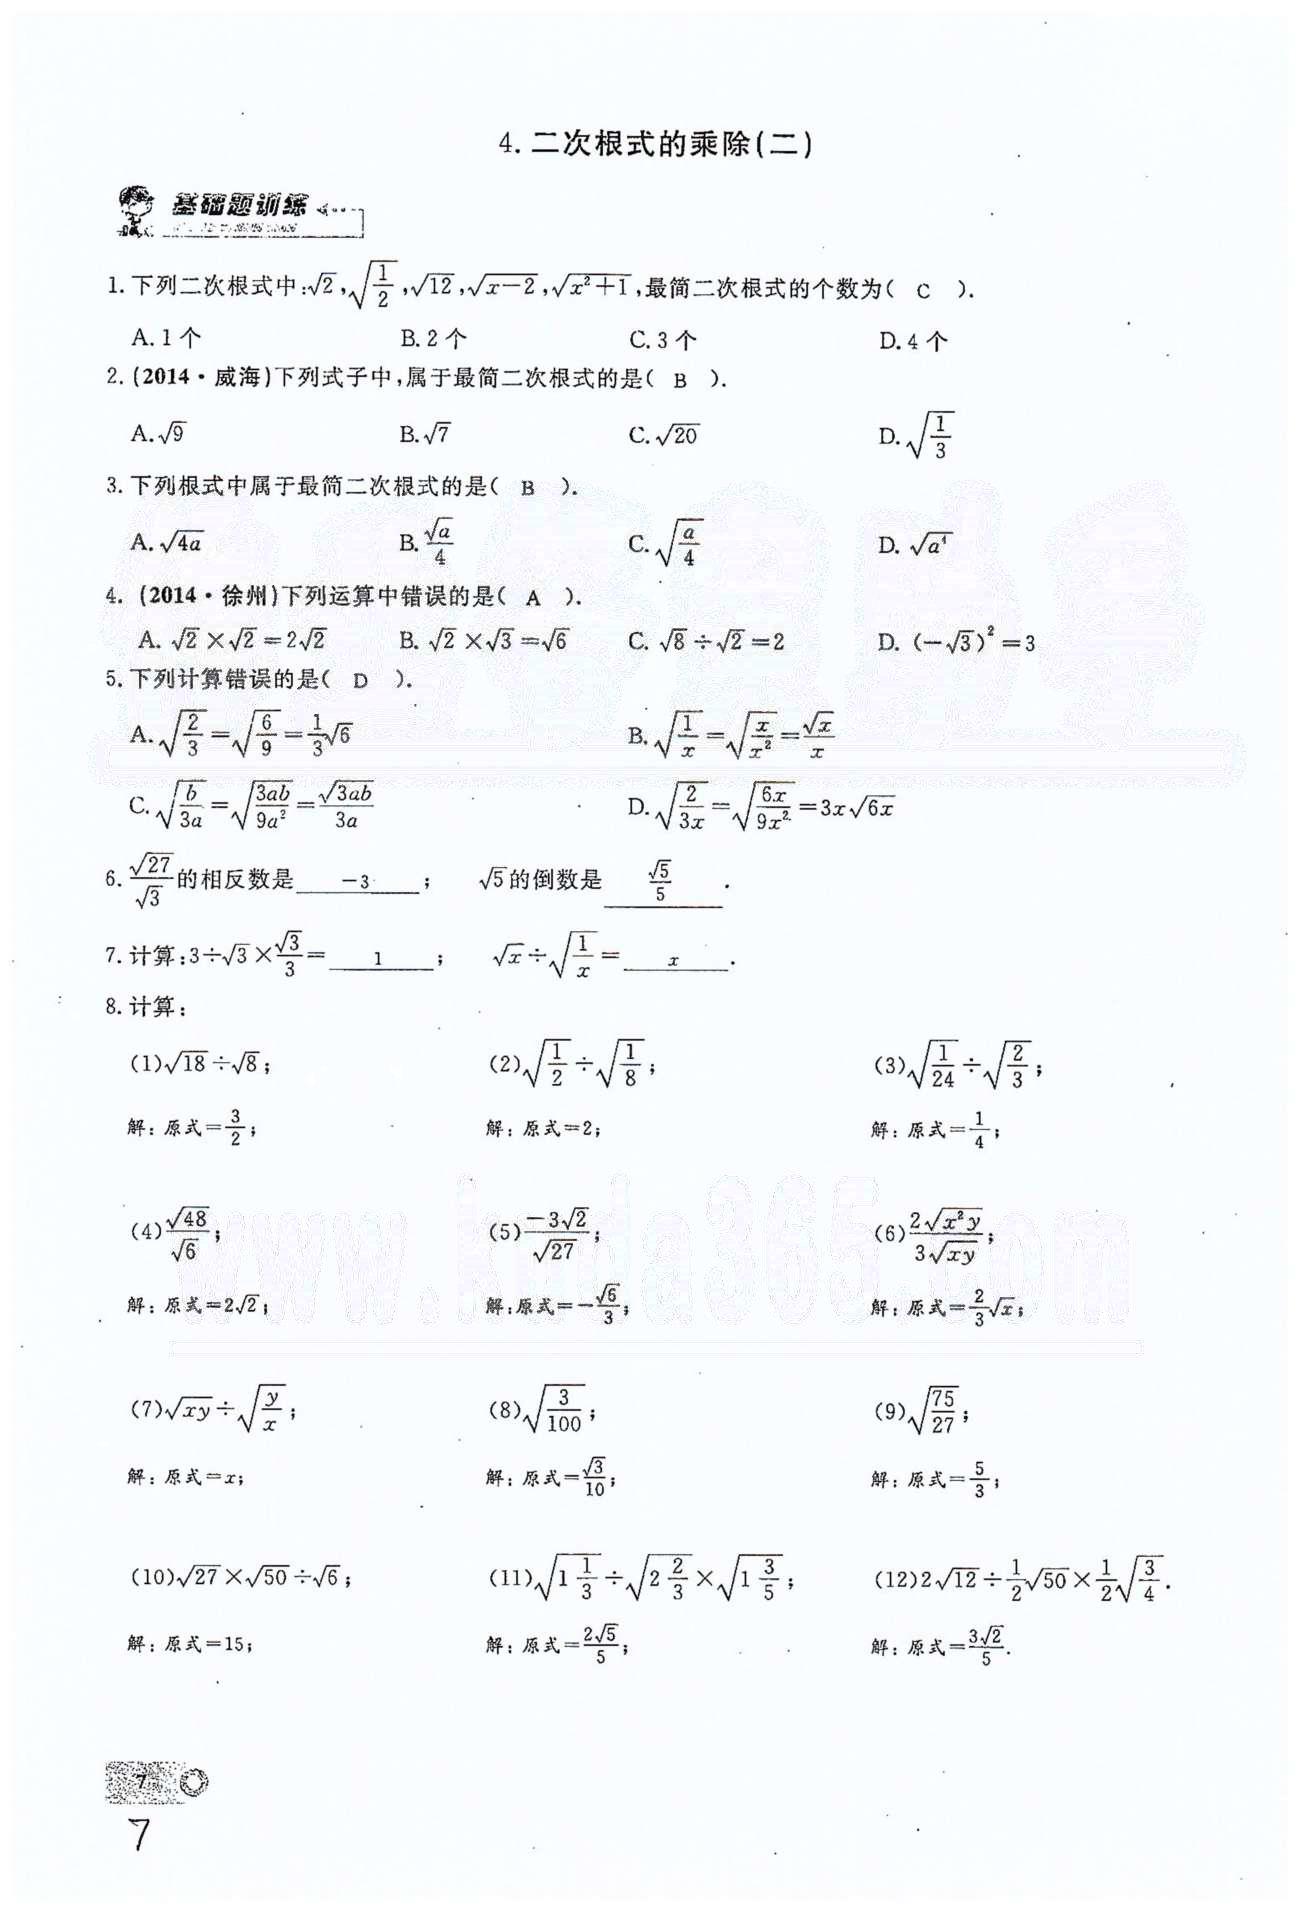 4. 二次根式的乘除(二)
基础题训练
1. 下列二次根式中:√2,√(1/2),√12,√(x-2),√(x²+1),最简二次根式的个数为( C ).
A. 1个 B. 2个 C. 3个 D. 4个
2. (2014·威海)下列式子中,属于最简二次根式的是( B ).
A. √9 B. √7 C. √20 D. √(1/3)
3. 下列根式中属于最简二次根式的是( B ).
A. √(4a) B. √a/4 C. √(a/4) D. √(a⁴)
4. (2014·徐州)下列运算中错误的是( A ).
A. √2×√2=2√2 B. √2×√3=√6 C. √8÷√2=2 D. (-√3)²=3
5. 下列计算错误的是( D ).
A. √(2/3)=√(6/9)=1/3√6 B. √(1/x)=√(x/x²)=√x/x
C. √(b/3a)=√(3ab/9a²)=√(3ab)/3a D. √(2/3x)=√(6x/9x²)=3x√(6x)
6. √27/√3的相反数是 -3 ; √5的倒数是 √5/5 .
7. 计算:3÷√3×√3/3= 1 ; √x÷√(1/x)= x .
8. 计算:
(1)√18÷√8; (2)√(1/2)÷√(1/8); (3)√(1/24)÷√(2/3);
解:原式=3/2; 解:原式=2; 解:原式=1/4;
(4)√48/√6; (5)-3√2/√27; (6)2√(x²y)/3√(xy);
解:原式=2√2; 解:原式=-√6/3; 解:原式=2/3√x;
(7)√(xy)÷√(y/x); (8)√(3/100); (9)√(75/27);
解:原式=x; 解:原式=√3/10; 解:原式=5/3;
(10)√27×√50÷√6; (11)√(1 1/3)÷√(2 2/3)×√(1 3/5); (12)2√12÷1/2√50×1/2√(3/4).
解:原式=15; 解:原式=2√5/5; 解:原式=3√2/5.
7
7